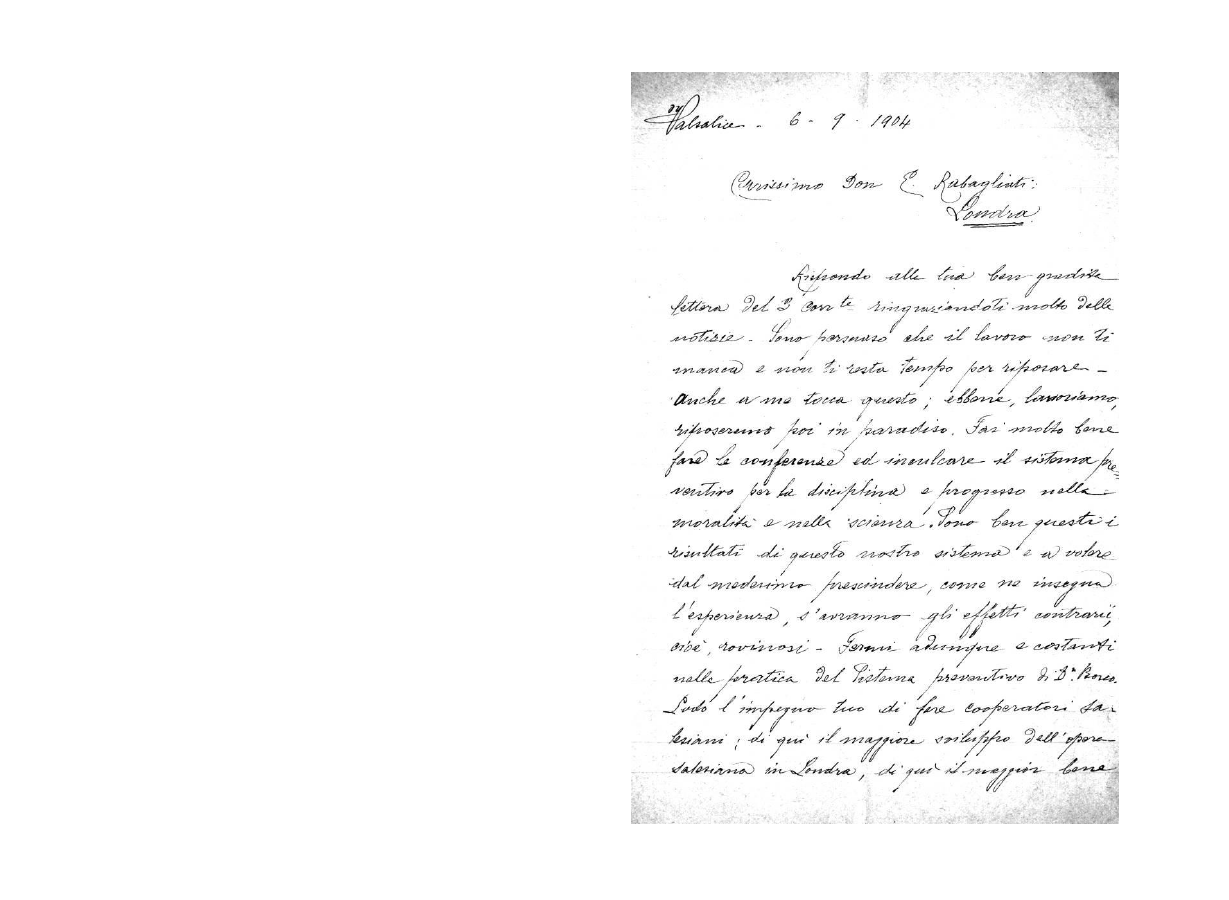 Valsalice - 6 - 9 - 1904
Carissimo Don E. Rabagliati:
Londra
Rispondo alla tua ben gradita
lettera del 3 corr.te ringraziandoti molto delle
notizie - Sono persuaso che il lavoro non ti
manca e non ti resta tempo per riposare -
Anche a me tocca questo; ebbene, lavoriamo,
riposeremo poi in paradiso. Fai molto bene
fare le conferenze ed inculcare il sistema pre=
ventivo per la disciplina e progresso nella
moralità e nella scienza. Sono ben questi i
risultati di questo nostro sistema e a volere
dal medesimo prescindere, come ne insegna
l'esperienza, s'avranno gli effetti contrarii,
cioè, rovinosi - Fermi adunque e costanti
nella pratica del Sistema preventivo di Dn. Bosco.
Lodo l'impegno tuo di fare cooperatori sa-
lesiani; di qui il maggiore sviluppo dell'opera
salesiana in Londra, di qui il maggior bene